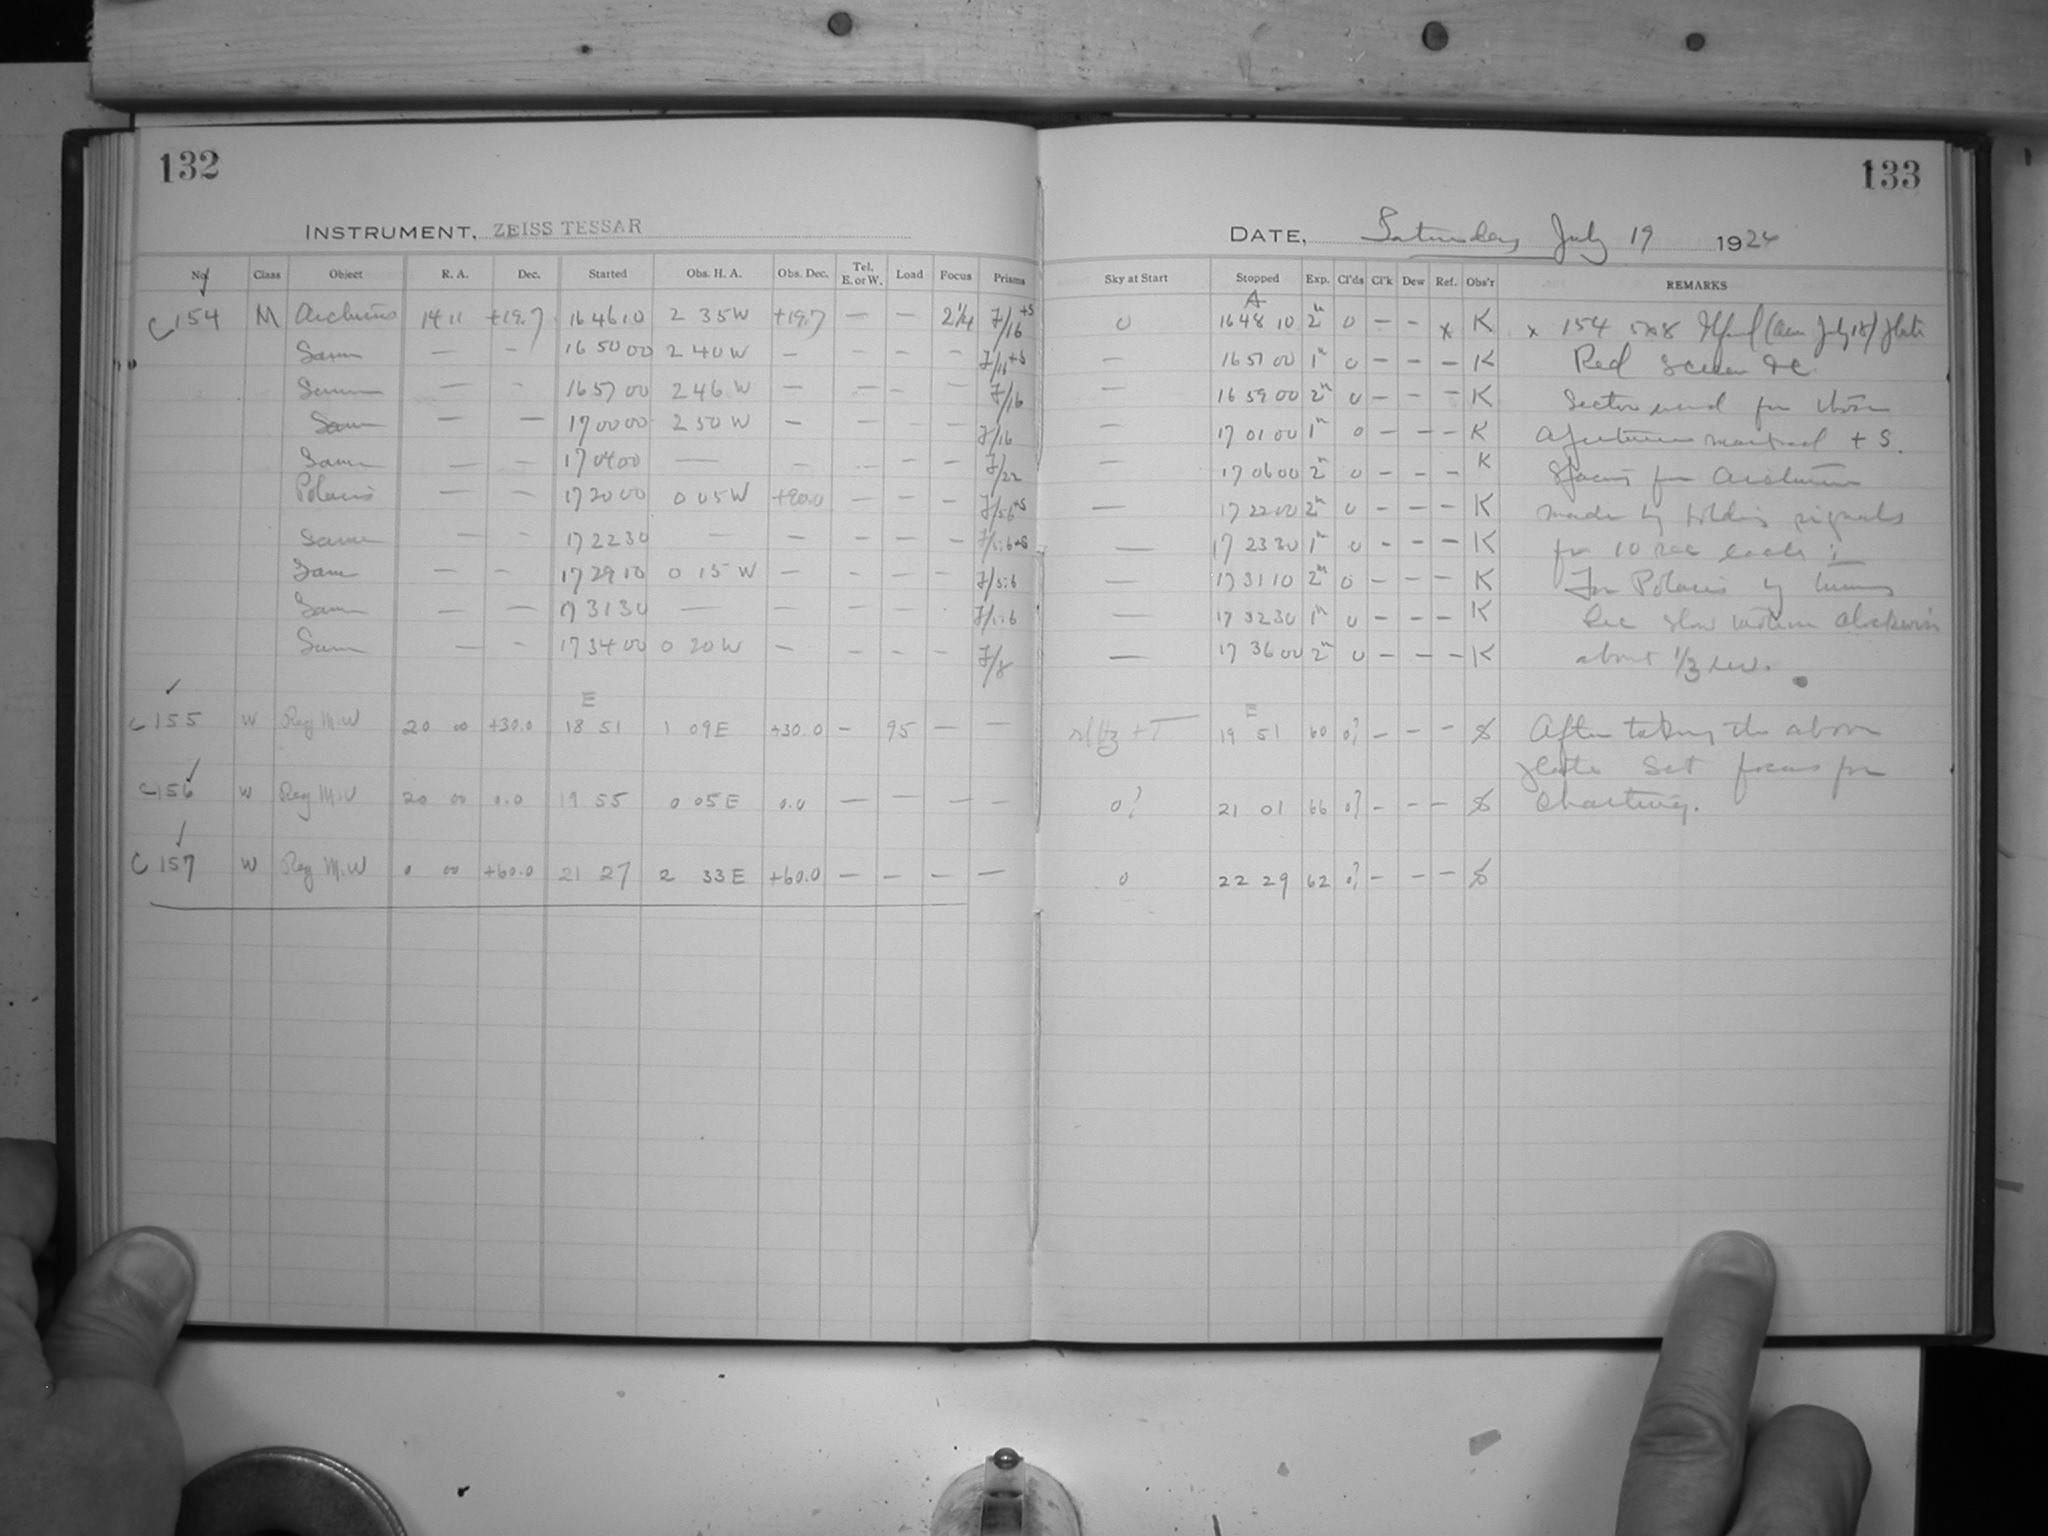 132
133
INSTRUMENT, ZEISS TESSAR
DATE, Saturday July 19 1924
No. Class Object R. A. Dec. Started Obs. H. A. Obs. Dec. Tel. E. or W. Load Focus Prisms Sky at Start Stopped Exp. Cl'ds Cl'k Dew Ref. Obs'r REMARKS
A
C154 M Arcturus 14 11 +19.7 16 46 10 2 35 W +19.7 — — 2 1/4 f/16 +S 0 16 48 10 2m 0 — — x K x 154 5x8 Ilford July 18) plate
Same — — 16 50 00 2 40 W — — — — f/16+S — 16 51 00 1m 0 — — — K Red Screen &c
Same — — 16 57 00 2 46 W — — — — f/16 — 16 59 00 2m 0 — — — K Sector used for those
Same — — 17 00 00 2 50 W — — — — f/16 — 17 01 00 1m 0 — — — K Apertures marked + S.
Same — — 17 04 00 — — — — — f/22 — 17 06 00 2m 0 — — — K Spacing for Arcturus
Polaris — — 17 20 00 0 05 W — — — f/5.6+S — 17 22 00 2m 0 — — — K made by holding signals
Same — — 17 22 30 — — — — — f/5.6+S — 17 23 30 1m 0 — — — K for 10 sec each;
Same — — 17 29 10 0 15 W — — — — f/5.6 — 17 31 10 2m 0 — — — K For Polaris by turning
Same — — 17 31 30 — — — — — f/5.6 — 17 32 30 1m 0 — — — K Dec slow motion clockwise
Same — — 17 34 00 0 20 W — — — — f/8 — 17 36 00 2m 0 — — — K about 1/3 rev.
E E
C155 W Reg M.W 20 00 +30.0 18 51 1 09 E +30.0 — 95 — — 19 51 60 0? — — — After taking the above
plate set focus for
C156 W Reg M.W 20 00 0.0 19 55 0 05 E 0.0 — — — — 0? 21 01 66 0? — — — charting.
C157 W Reg M.W 0 00 +60.0 21 27 2 33 E +60.0 — — — — 0 22 29 62 0? — — —